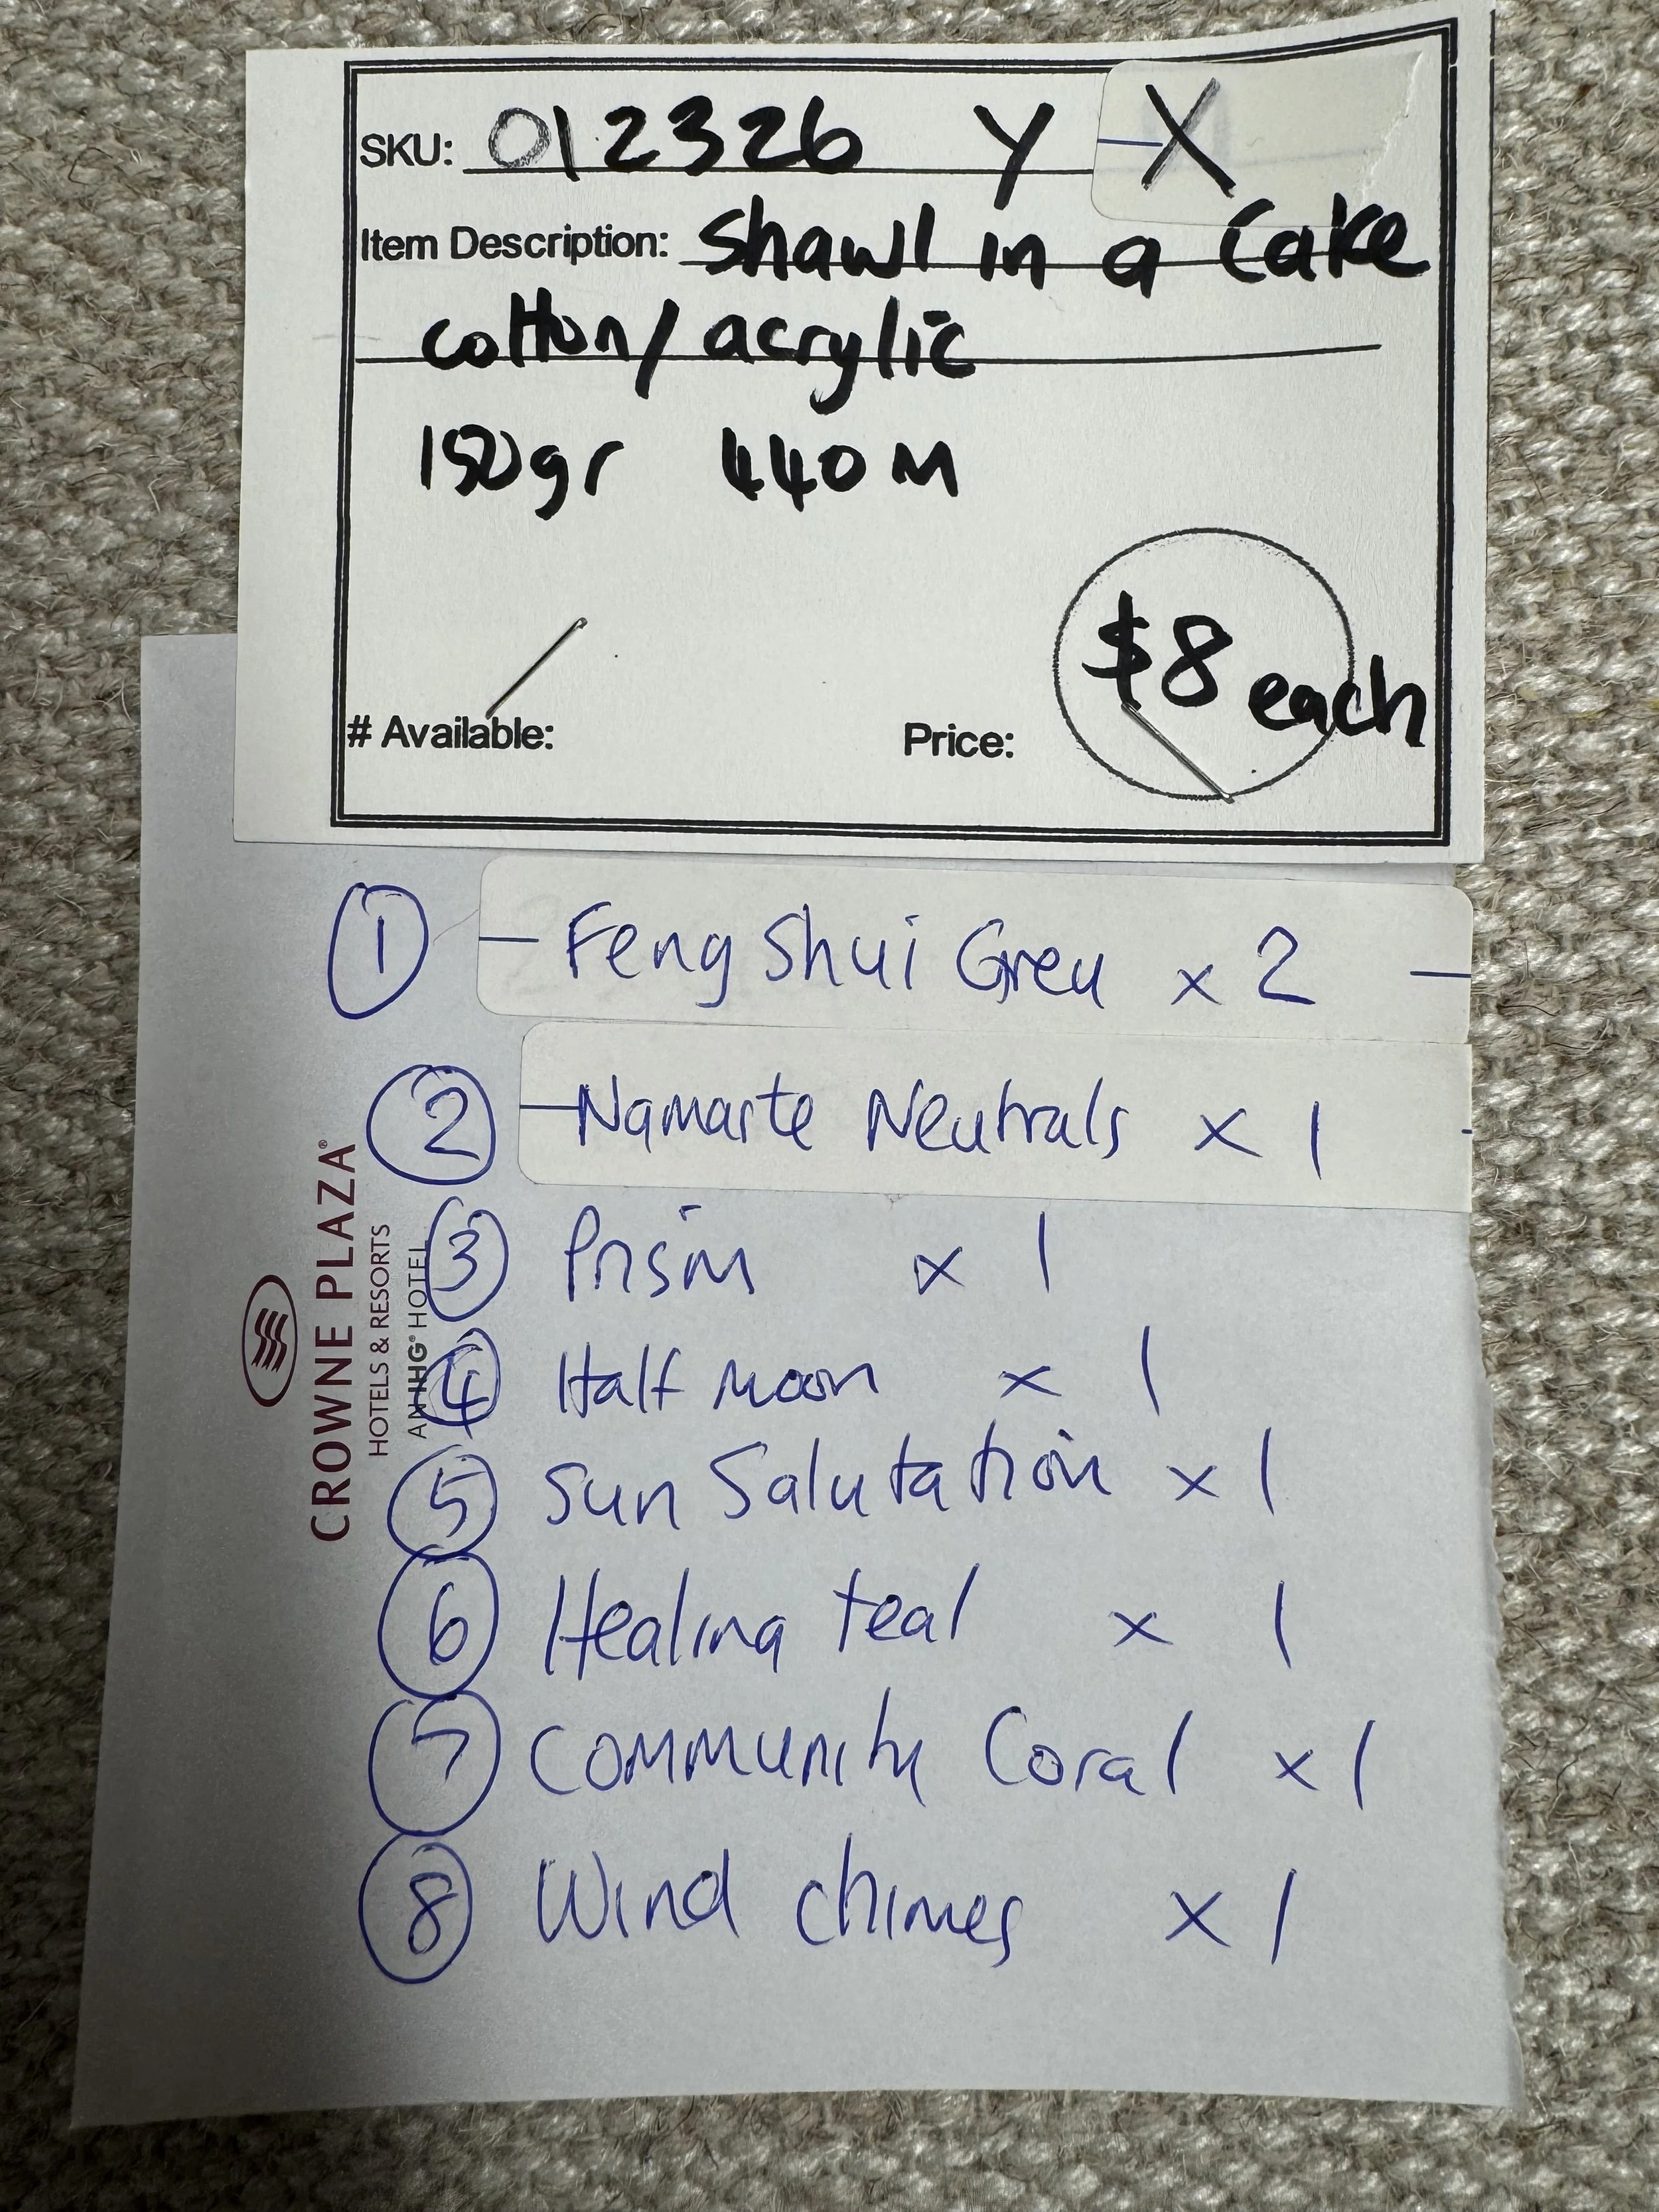 SKU: 012326 Y X
Item Description: Shawl in a Cake
cotton/acrylic
150gr 440M
# Available:
Price: $8 each
① Feng Shui Grey x 2
② Namaste Neutrals x 1
③ Prism x 1
④ Half Moon x 1
⑤ Sun Salutation x 1
⑥ Healing teal x 1
⑦ Community Coral x 1
⑧ Wind chimes x 1
CROWNE PLAZA®
HOTELS & RESORTS
AN IHG® HOTEL